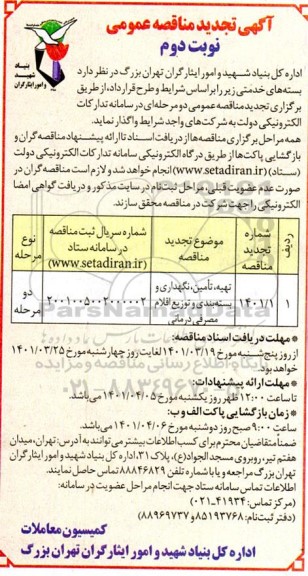 آگهی تجدید مناقصه عمومی
نوبت دوم
بنیاد شهید و امور ایثارگران
اداره کل بنیاد شهید و امور ایثارگران تهران بزرگ در نظر دارد
بسته‌های خدمتی زیر را بر اساس شرایط و طرح قرارداد، از طریق
برگزاری تجدید مناقصه عمومی دو مرحله‌ای در سامانه تدارکات
الکترونیکی دولت به شرکت‌های واجد شرایط واگذار نماید.
همه مراحل برگزاری مناقصه‌ها از دریافت اسناد تا ارائه پیشنهاد مناقصه‌گران و
بازگشایی پاکت‌ها از طریق درگاه الکترونیکی سامانه تدارکات الکترونیکی دولت
(ستاد) (www.setadiran.ir) انجام خواهد شد و لازم است مناقصه‌گران در
صورت عدم عضویت قبلی، مراحل ثبت‌نام در سایت مذکور و دریافت گواهی امضا
الکترونیکی را جهت شرکت در مناقصه محقق سازند.
ردیف | شماره تجدید مناقصه | موضوع تجدید مناقصه | شماره سریال ثبت مناقصه در سامانه ستاد (www.setadiran.ir) | نوع مرحله
۱ | ۱۴۰۱/۱ | تهیه، تأمین، نگهداری و بسته‌بندی و توزیع اقلام مصرفی درمانی | ۲۰۰۱۰۰۵۰۰۲۰۰۰۰۰۲ | دو مرحله
* مهلت دریافت اسناد مناقصه:
از روز پنج‌شنبه مورخ ۱۴۰۱/۰۳/۱۹ لغایت روز چهارشنبه مورخ ۱۴۰۱/۰۳/۲۵
خواهد بود.
* مهلت ارائه پیشنهادات:
تا ساعت ۱۲:۰۰ ظهر روز یکشنبه مورخ ۱۴۰۱/۰۴/۰۵ می‌باشد.
* زمان بازگشایی پاکت الف و ب:
ساعت ۹:۰۰ صبح روز دوشنبه مورخ ۱۴۰۱/۰۴/۰۶ می‌باشد.
ضمنا متقاضیان محترم برای کسب اطلاعات بیشتر می‌توانند به آدرس: تهران، میدان
هفتم تیر، روبروی مسجد الجواد(ع)، پلاک ۳۱، اداره کل بنیاد شهید و امور ایثارگران
تهران بزرگ مراجعه و یا با شماره تلفن ۸۸۸۴۶۸۲۹ تماس حاصل نمایند.
اطلاعات تماس سامانه ستاد جهت انجام مراحل عضویت در سامانه:
(مرکز تماس: ۴۱۹۳۴-۰۲۱)
(دفتر ثبت‌نام: ۸۵۱۹۳۷۶۸ و ۸۸۹۶۹۷۳۷)
کمیسیون معاملات
اداره کل بنیاد شهید و امور ایثارگران تهران بزرگ
ParsNamadData